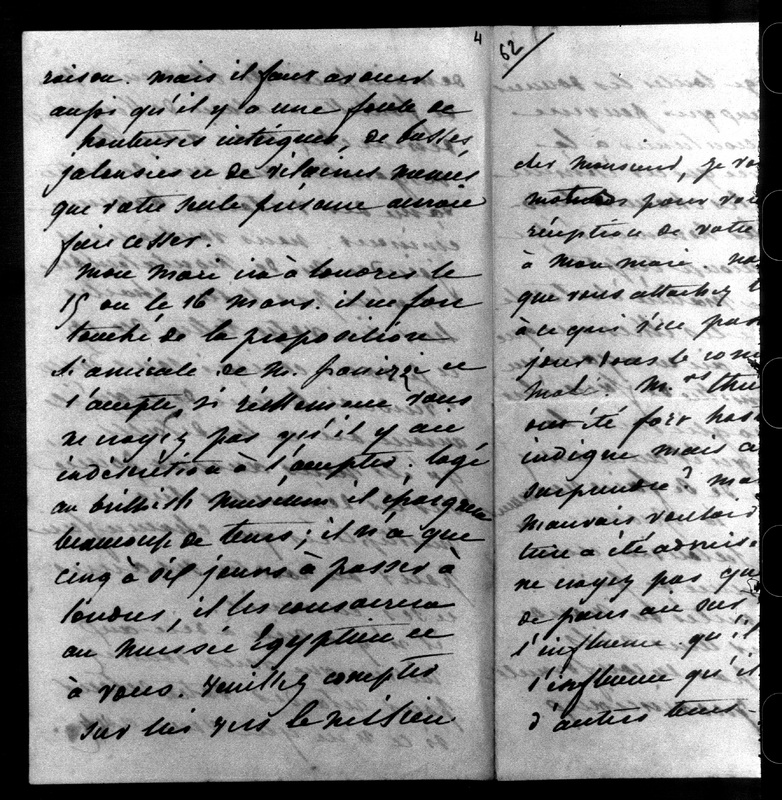 4
raison. mais il faut avouer
aussi qu'il y a une foule de
honteuses intrigues, de basses
jalousies et de vilaines menées
que votre seule présence aurait
fait cesser.
Mon mari ira à Londres le
15 ou le 16 mars. il est fort
touché de la proposition
si amicale de M. Panizzi et
l'accepte, si réellement vous
ne croyez pas qu'il y ait
indiscrétion à l'accepter; logé
au british Museum il épargnera
beaucoup de tems; il n'a que
cinq à six jours à passer à
Londres, il les consacrera
au Musée Égyptien et
à vous. Veuillez compter
sur lui vers le milieu
62
cher monsieur, je
pour
réception de votre
à mon mari
que vous attachez
à ce qui s'en
jour sous le
mal.
ont été fort
indigné mais
surprendre?
mauvais vouloir
été
ne croyez pas
de paris ait sur
l'influence qu'il
l'influence qu'il
d'autres tems